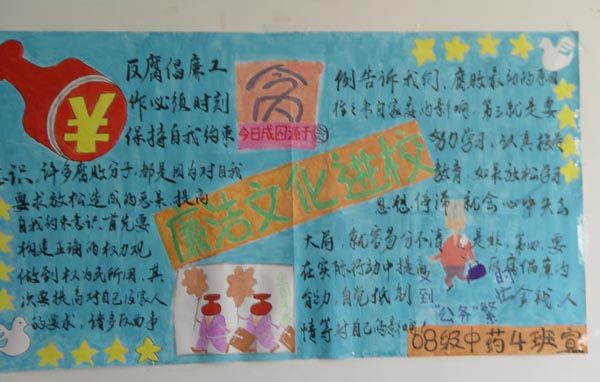 反腐倡廉工
作必须时刻
保持自我约束
意识，许多腐败分子，都是因为对自我
要求放松造成的恶果，提高
自我约束意识首先要
构建正确的权力观
做到权为民所用，其
次要提高对自己及家人
的要求，诸多反面事
¥
贪
今日成囚源于
廉洁文化进校
例告诉我们，腐败最初的原因
往往来自家庭的影响，第三就是要
努力学习，认真接受
教育，如果放松学习
思想停滞，就会心中失去
大局，就容易分不清是非，第四，要
在实际行动中提高反腐倡廉的
自觉抵制
金钱，人
情等对自己的影响
"公务"繁忙
08级中药4班宣